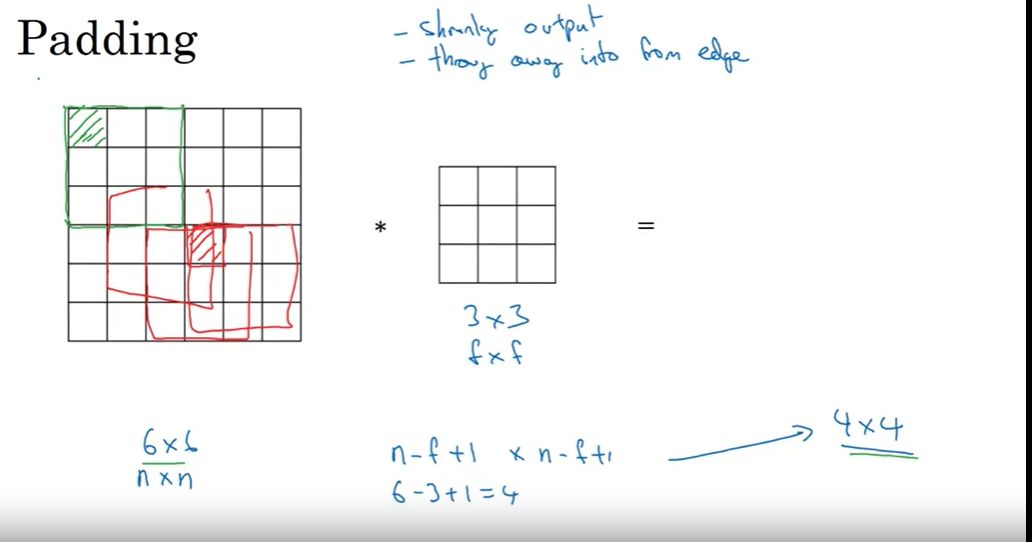 Padding
- shrinky output
- throw away info from edge
*
=
3×3
f×f
6×6
n×n
n-f+1 × n-f+1
6-3+1=4
4×4